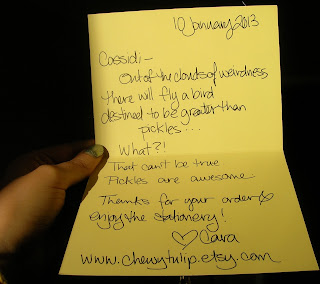 10 January 2013
Cassidi-
Out of the clouds of weirdness
there will fly a bird
destined to be greater than
pickles...
What?!
That can't be true
Pickles are awesome
Thanks for your order
enjoy the stationery!
♡ Cara
www.chewytulip.etsy.com